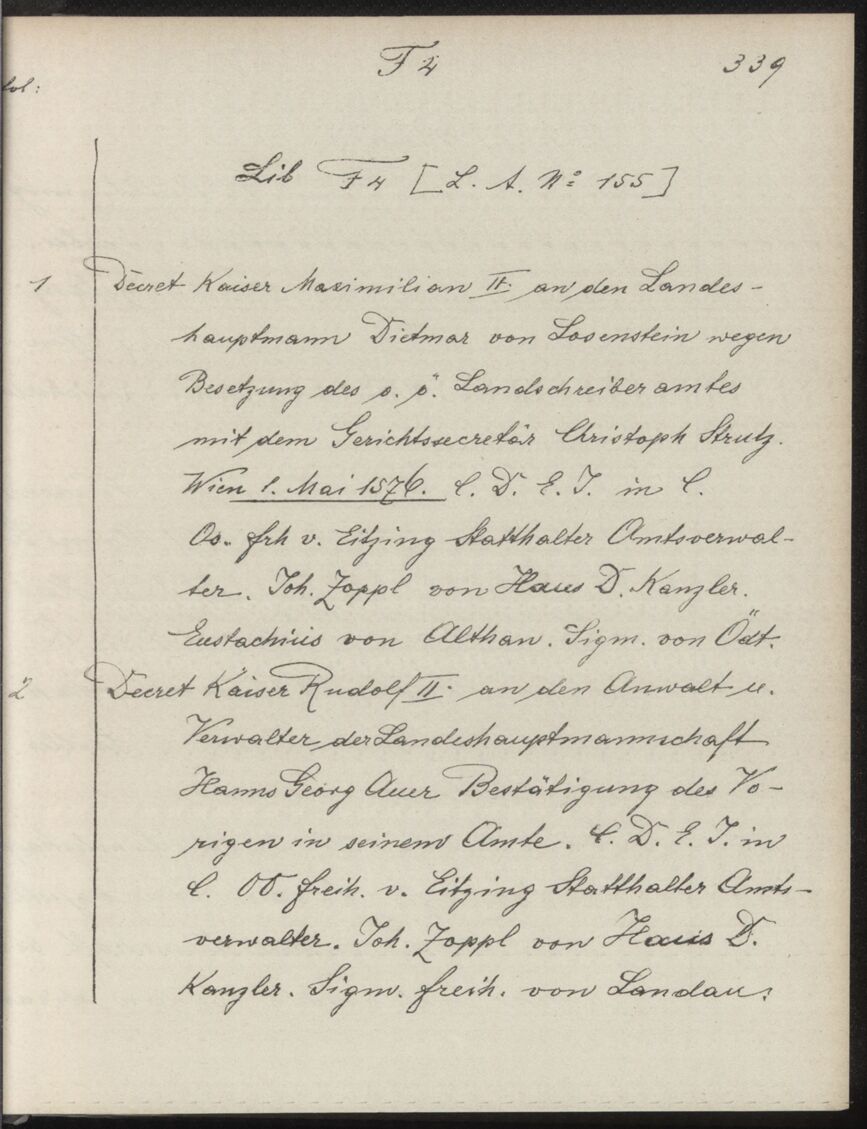 F 4 339
fol:
Lib F 4 [L. A. No: 155]
1 Decret Kaiser Maximilian II. an den Landes-
hauptmann Dietmar von Losenstein wegen
Besetzung des o. ö. Landschreiberamtes
mit dem Gerichtssecretär Christoph Strutz.
Wien 1. Mai 1576. C. D. E. I. in C.
Os. frh v. Eitzing Statthalter Amtsverwal-
ter. Joh. Zoppl von Haus D. Kanzler.
Eustachius von Althan. Sigm. von Ödt.
2 Decret Kaiser Rudolf II. an den Anwalt u.
Verwalter der Landeshauptmannschaft
Hanns Georg Auer Bestätigung des Vo-
rigen in seinem Amte. C. D. E. I. in
C. OO. freih. v. Eitzing Statthalter Amts-
verwalter. Joh. Zoppl von Haus D.
Kanzler. Sigm. freih. von Landau: